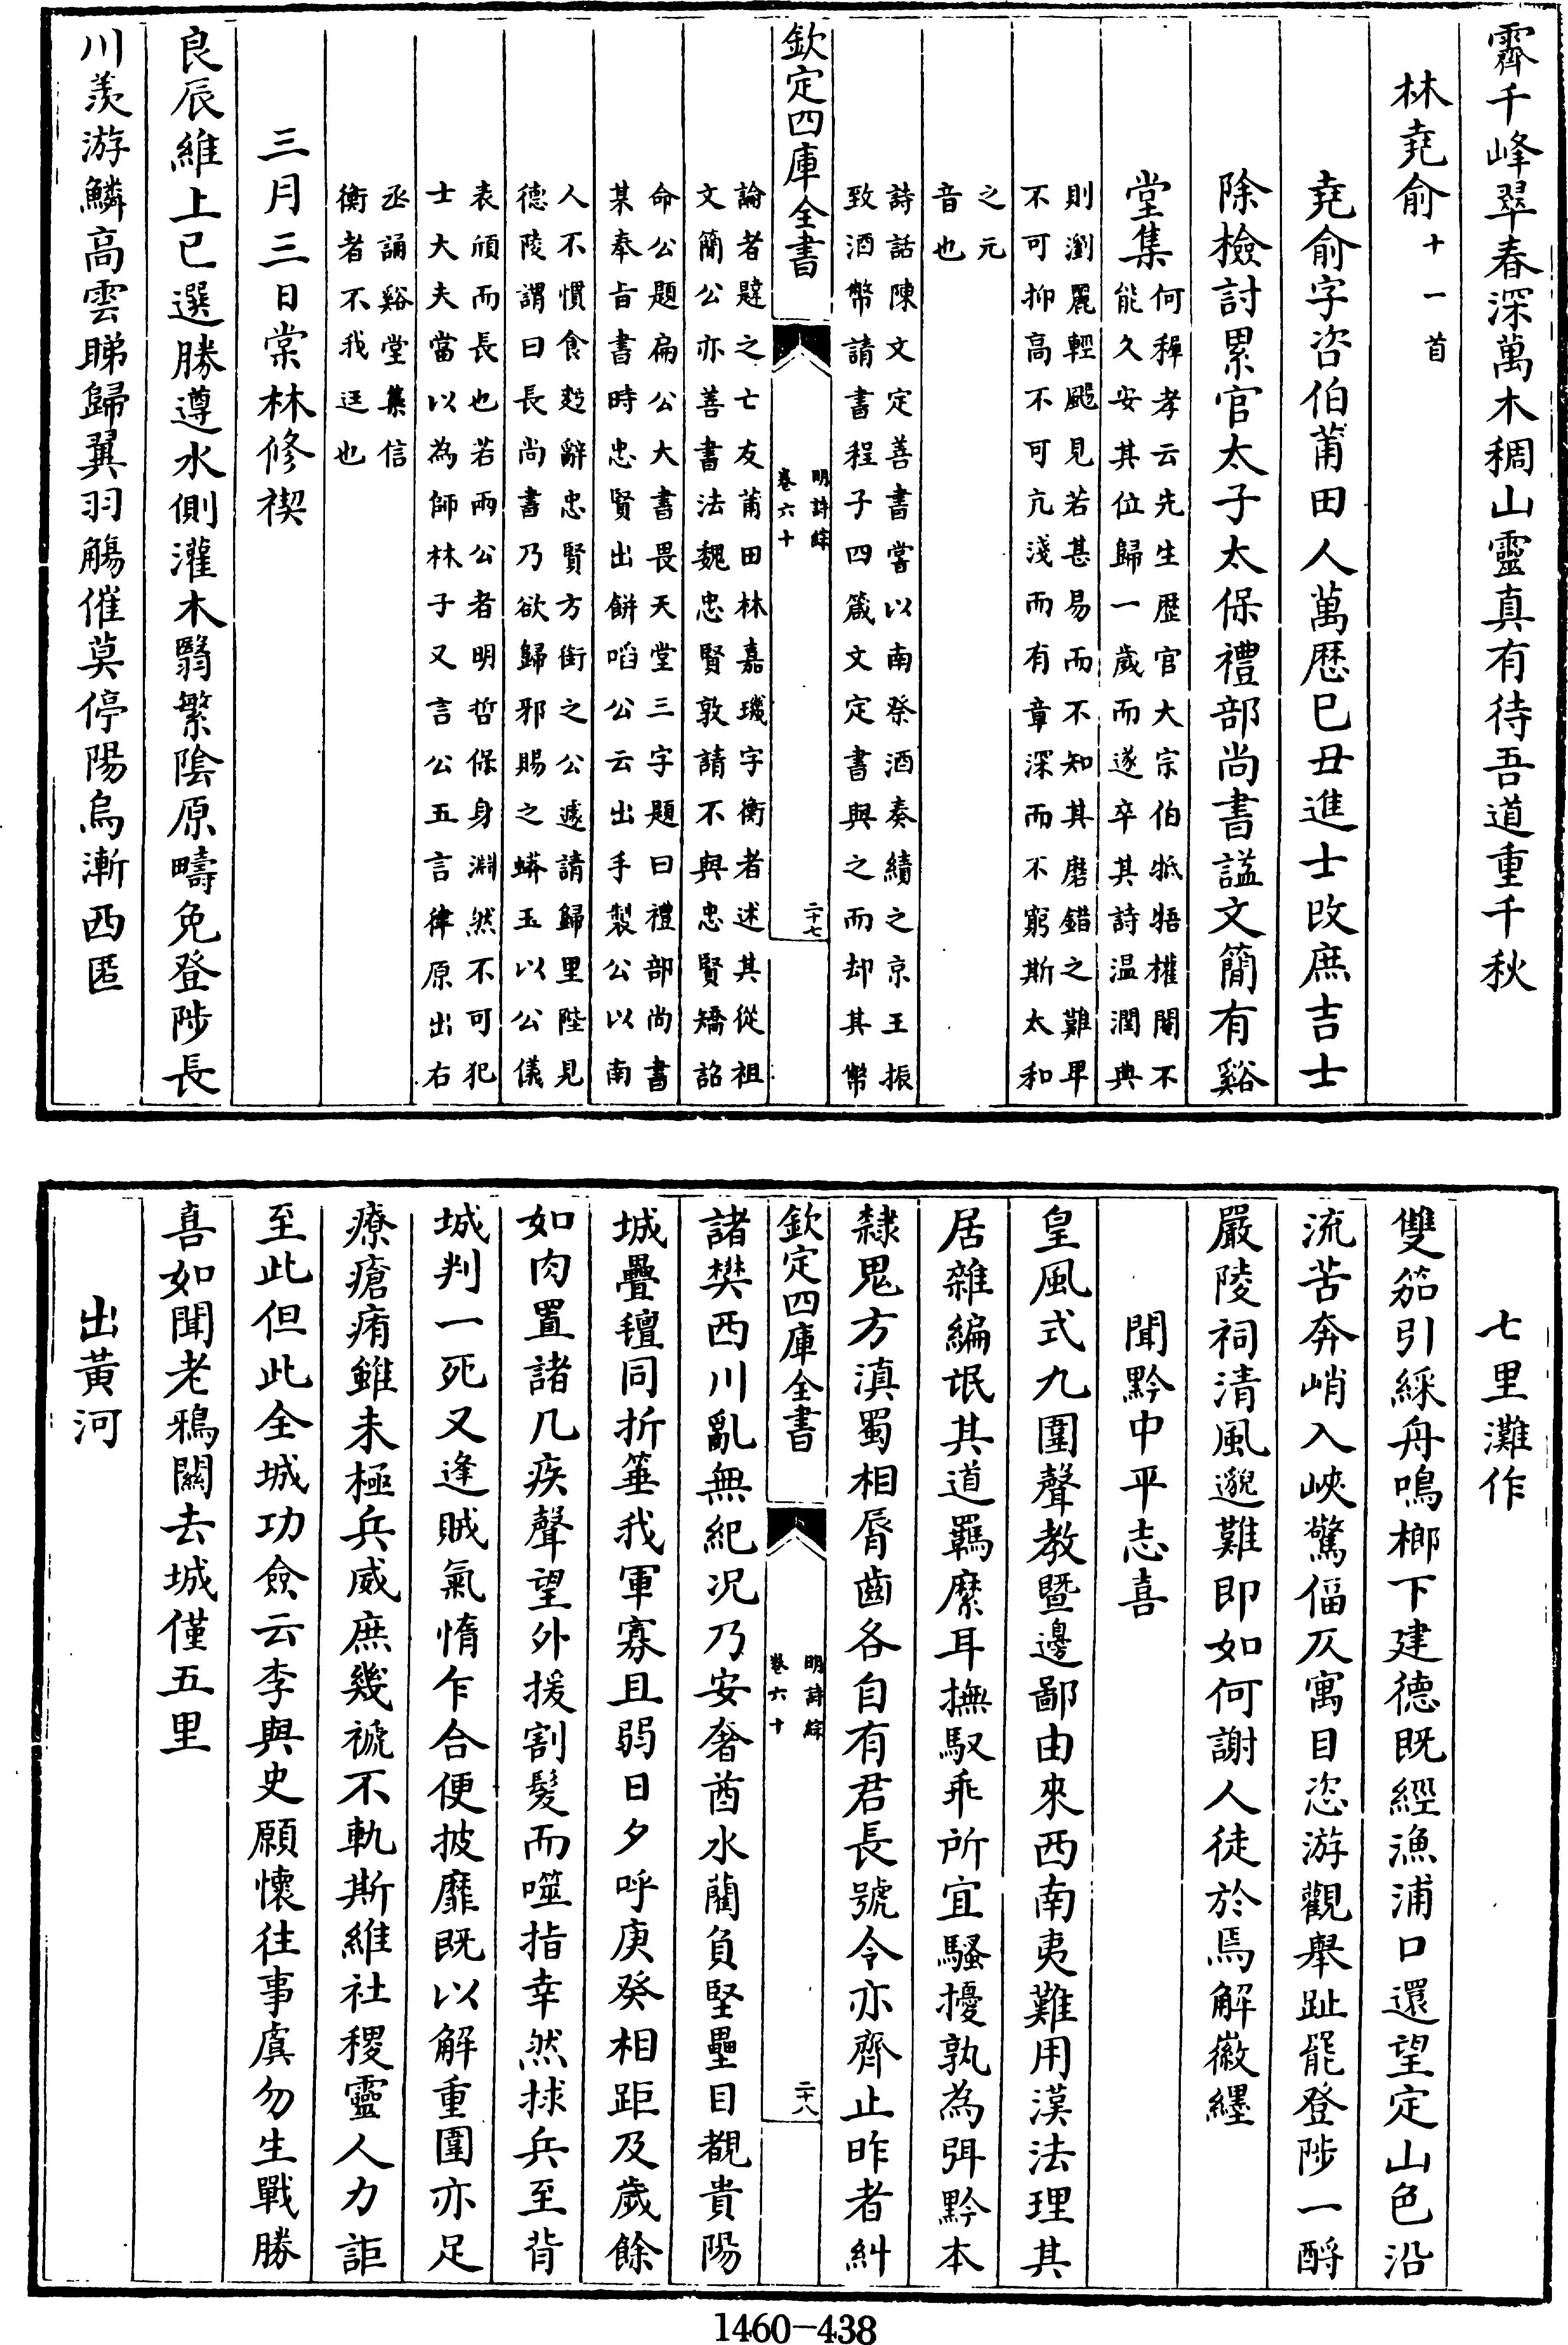 霽千峰翠春深萬木稠山靈真有待吾道重千秋
林堯俞十一首
堯俞字咨伯莆田人萬厯己丑進士改庶吉士
除檢討累官太子太保禮部尚書諡文簡有谿
堂集何穉孝云先生歷官大宗伯牴牾權閹不
能久安其位歸一歲而遂卒其詩温潤典
則瀏麗輕颺見若甚易而不知其磨錯之難早
不可抑高不可亢淺而有章深而不窮斯太和
之元
音也
詩話陳文定善書嘗以南祭酒奏績之京王振
致酒幣請書程子四箴文定書與之而却其幣
欽定四庫全書
明詩綜
卷六十
二十七
論者韙之亡友莆田林嘉璣字衡者述其從祖
文簡公亦善書法魏忠賢敦請不與忠賢矯詔
命公題扁公大書畏天堂三字題曰禮部尚書
某奉旨書時忠賢出餅啗公云出手製公以南
人不慣食麪辭忠賢方銜之公遽請歸里陛見
德陵謂曰長尚書乃欲歸邪賜之蟒玉以公儀
表頎而長也若兩公者明哲保身淵然不可犯
士大夫當以為師林子又言公五言律原出右
丞誦谿堂集信
衡者不我迋也
三月三日棠林修禊
良辰維上巳選勝遵水側灌木翳繁陰原疇免登陟長
川羨游鱗高雲睇歸翼羽觴催莫停陽烏漸西匿
七里灘作
雙笳引綵舟鳴榔下建德既經漁浦口還望定山色沿
流苦奔峭入峽驚偪仄寓目恣游觀舉趾罷登陟一酹
嚴陵祠清風邈難即如何謝人徒於焉解徽纆
聞黔中平志喜
皇風式九圍聲教暨邊鄙由來西南夷難用漢法理其
居雜編氓其道羈縻耳撫馭乖所宜騷擾孰為弭黔本
隸鬼方滇蜀相脣齒各自有君長號令亦齊止昨者糾
欽定四庫全書
明詩綜
卷六十
二十八
諸樊西川亂無紀況乃安奢酋水藺負堅壘目覩貴陽
城疊穜同折箠我軍寡且弱日夕呼庚癸相距及歲餘
如肉置諸几疾聲望外援割髮而噬指幸然捄兵至背
城判一死又逢賊氣惰乍合便披靡既以解重圍亦足
療瘡痏雖未極兵威庶幾褫不軌斯維社稷靈人力詎
至此但此全城功僉云李與史願懷往事虞勿生戰勝
喜如聞老鴉關去城僅五里
出黃河
1460-438